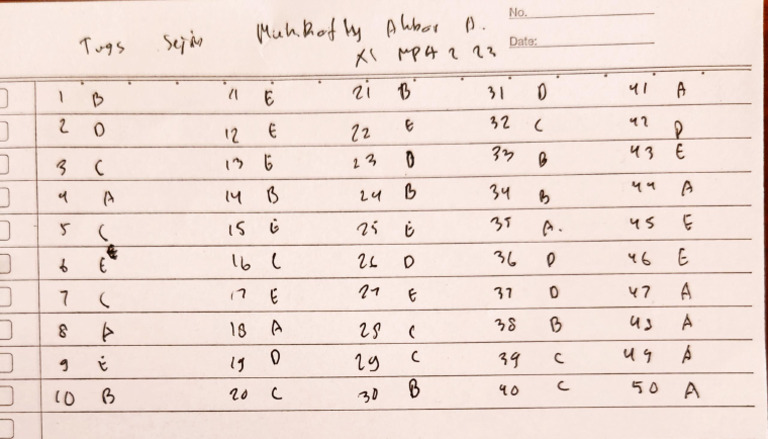 No.
Tugs Sejin Muh. Rafly Akbar A.
XI MPA 2 23
Date:
1 B 11 E 21 B 31 D 41 A
2 D 12 E 22 E 32 C 42 D
3 C 13 E 23 D 33 B 43 E
4 A 14 B 24 B 34 B 44 A
5 C 15 E 25 E 35 A. 45 E
6 E 16 C 26 D 36 D 46 E
7 C 17 E 27 E 37 D 47 A
8 A 18 A 28 C 38 B 48 A
9 E 19 D 29 C 39 C 49 A
10 B 20 C 30 B 40 C 50 A